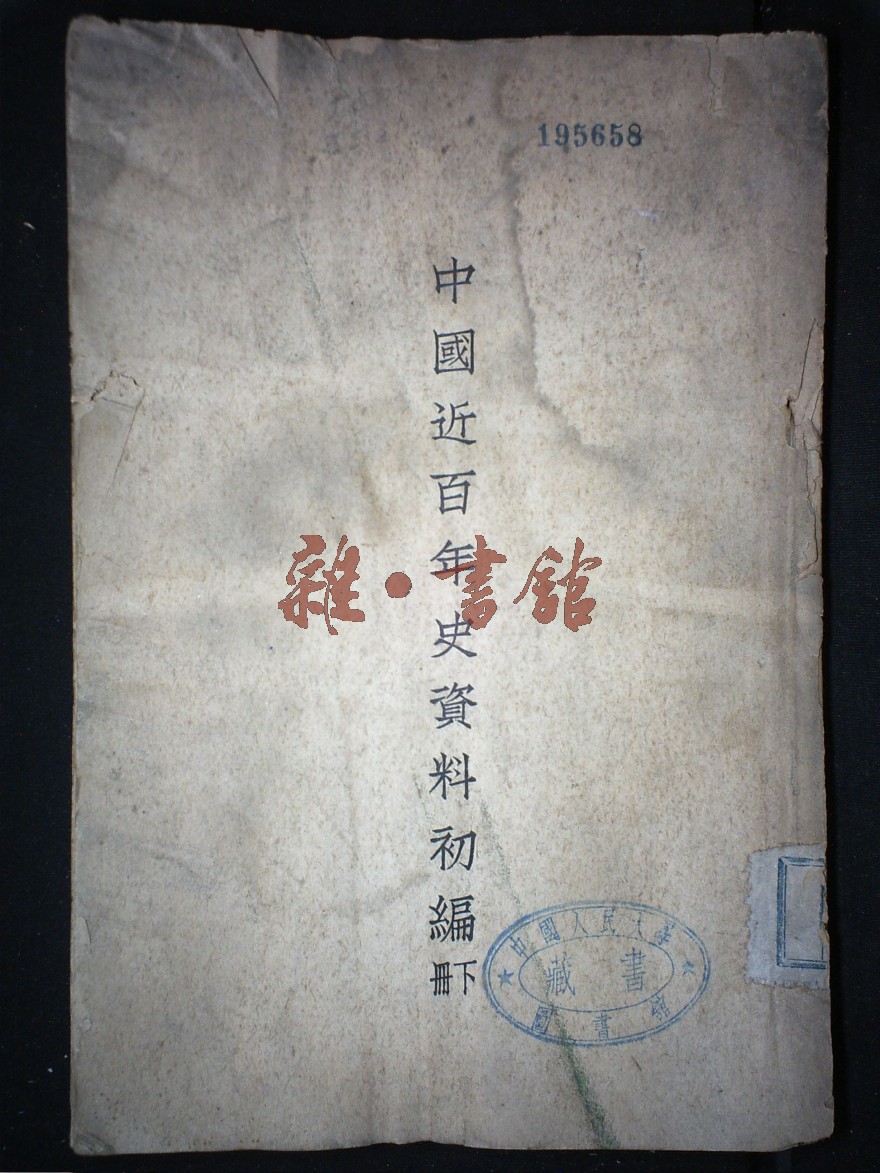 195658
中國近百年史資料初編
下冊
雜·書館
中國人民大學
書藏
圖書館